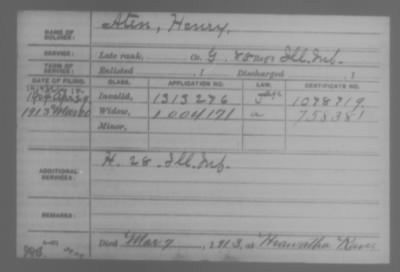 NAME OF SOLDIER: Aten, Henry,
SERVICE: Late rank, Co. G, 85 Reg't Ill. Inf.
TERM OF SERVICE: Enlisted , 1 Discharged , 1
DATE OF FILING. CLASS. APPLICATION NO. LAW. CERTIFICATE NO.
Invalid, 1313276 1078719.
1913 Mar Widow, 1004171 a 758381
Minor,
ADDITIONAL SERVICES: H. 28 Ill. Inf.
REMARKS:
Died Mar 7, 1913, at Hiawatha Kans